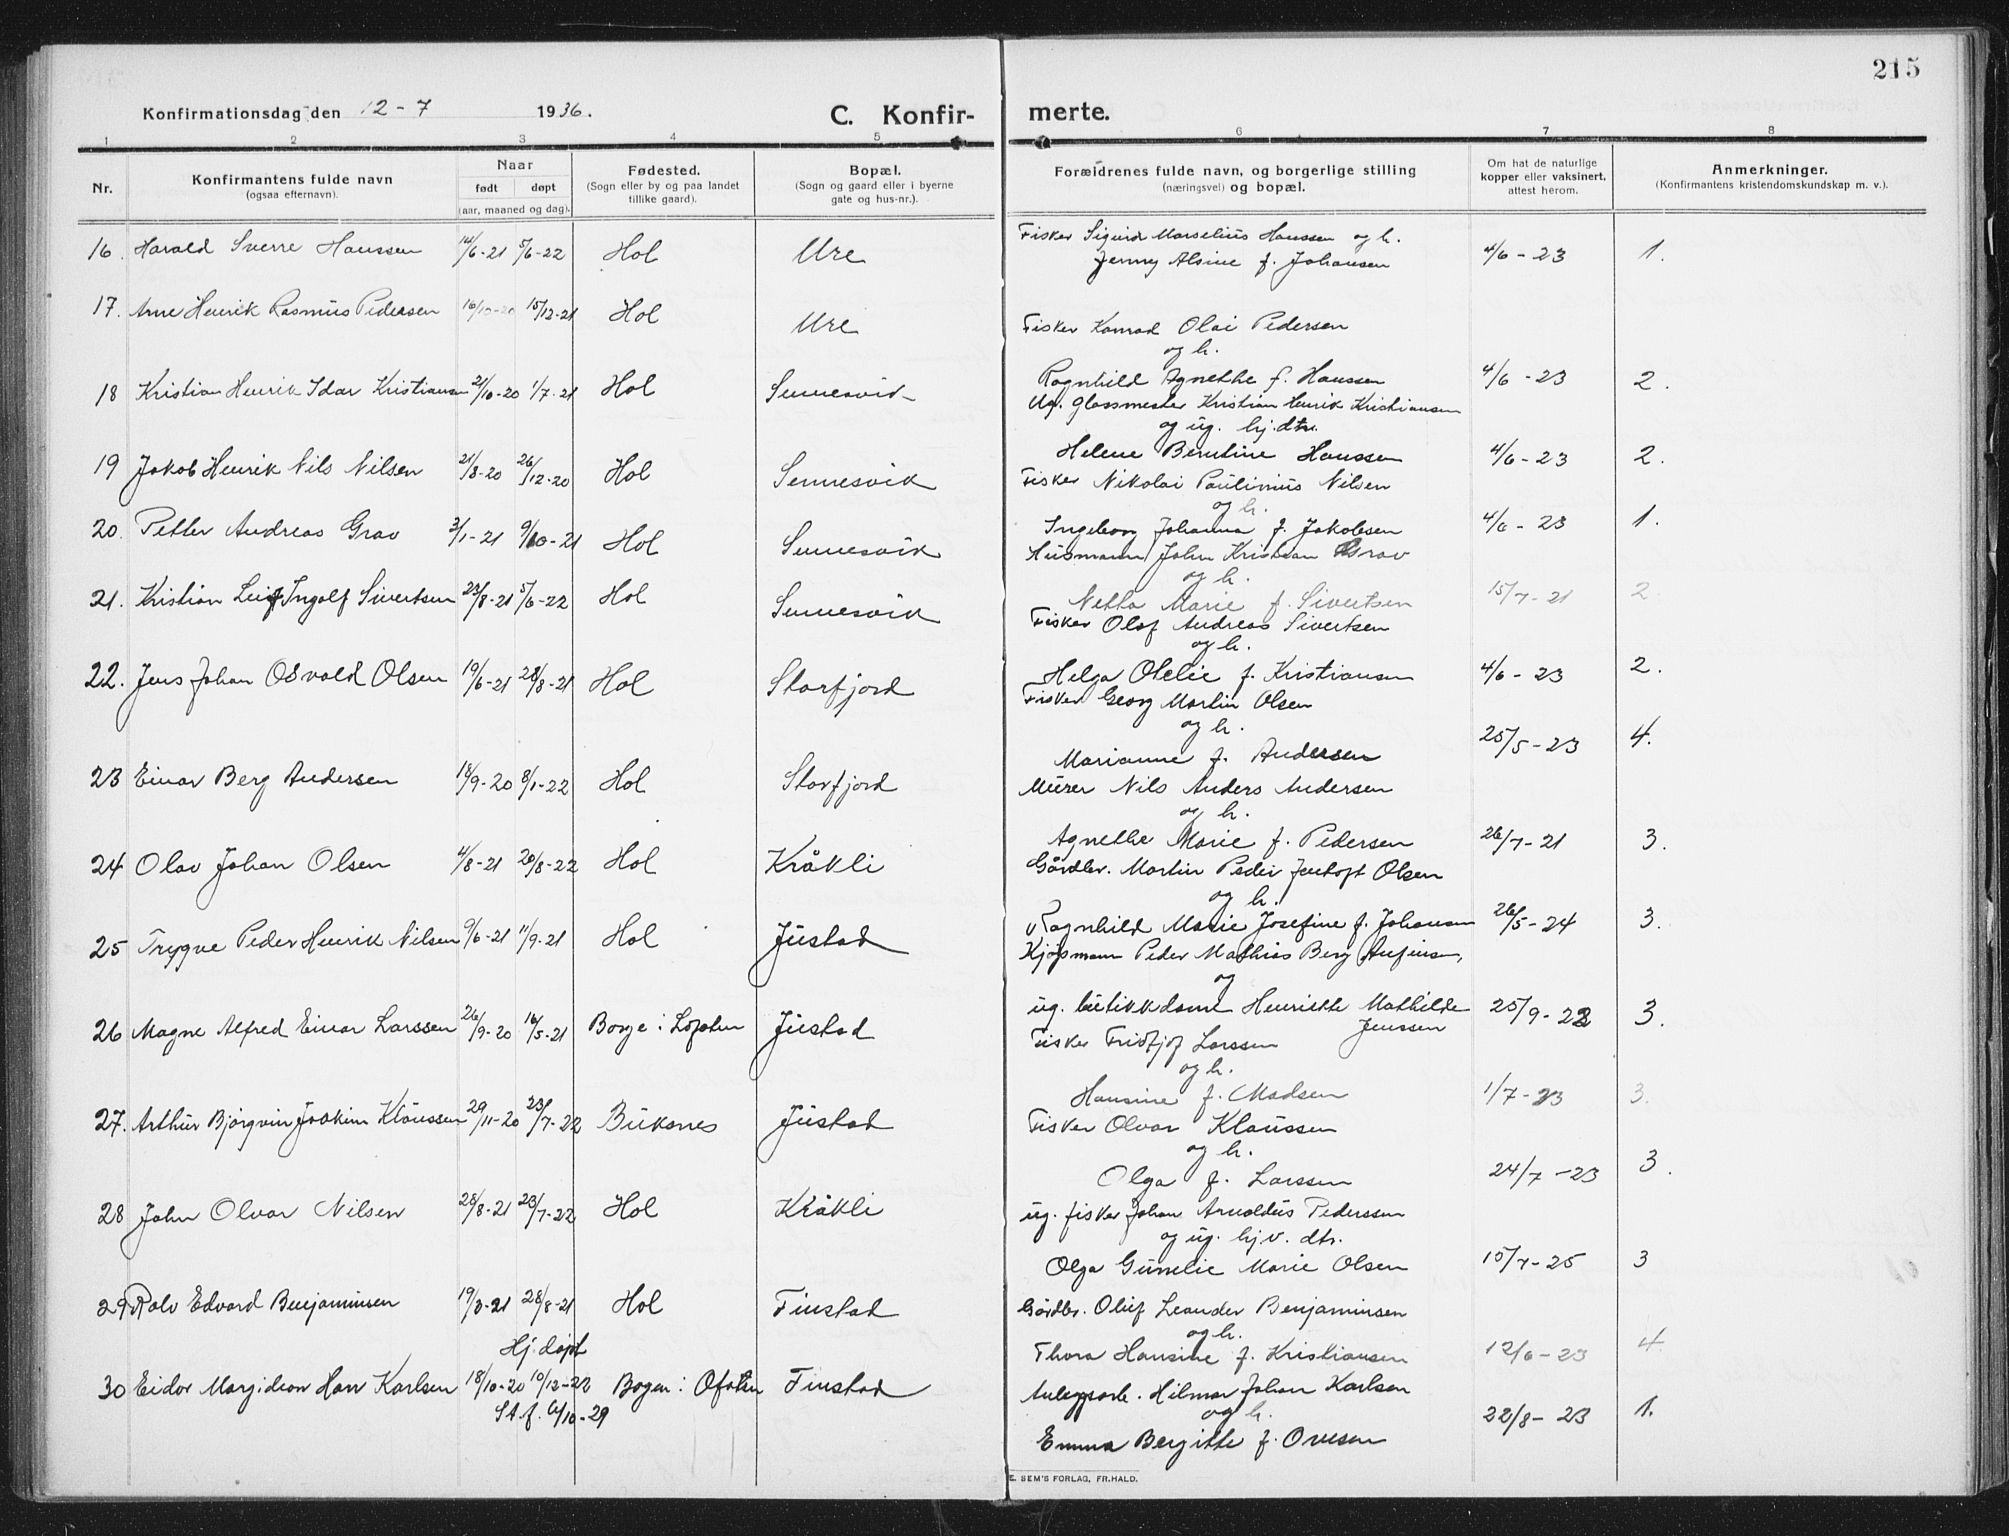 215
Konfirmationsdag den 12-7 1936.
C. Konfir-merte.
1 2 3 4 5 6 7 8
Nr.
Konfirmantens fulde navn
(ogsaa efternavn).
Naar
født døpt
(aar, maaned og dag).
Fødested.
(Sogn eller by og paa landet
tillike gaard).
Bopæl.
(Sogn og gaard eller i byerne
gate og hus-nr.).
Forældrenes fulde navn, og borgerlige stilling
(næringsvei) og bopæl.
Om hat de naturlige
kopper eller vaksinert,
attest herom.
Anmerkninger.
(Konfirmantens kristendomskundskap m. v.).
16. Harald Sverre Hanssen 14/6-21 5/6-22 Hol Ure
Fisker Sigurd Marselius Hanssen og h.
Jenny Alsine f. Johansen 4/6-23 1.
17. Arne Henrik Rasmus Pedersen 16/10-20 15/12-21 Hol Ure
Fisker Konrad Olai Pedersen
og h.
Ragnhild Agnethe f. Hanssen 4/6-23 2.
18 Kristian Henrik Idar Kristiansen 21/10-20 1/7-21 Hol Sennesvik
Ug. glassmester Kristian Henrik Kristiansen
og ug. hj. dtr.
Helene Berntine Hanssen 4/6-23 2.
19 Jakob Henrik Nils Nilsen 21/8-20 26/12-20 Hol Sennesvik
Fisker Nikolai Paulinius Nilsen
og h.
Ingeborg Johanna f. Jakobsen 4/6-23 1.
20. Petter Andreas Grav 3/1-21 9/10-21 Hol Sennesvik
Husmann John Kristian Grav
og h.
Netta Marie f. Sivertsen 15/7-21 2
21. Kristian Leif Ingolf Sivertsen 23/8-21 5/6-22 Hol Sennesvik
Fisker Olaf Andreas Sivertsen
og h.
Helga Otelie f. Kristiansen 4/6-23 2.
22. Jens Johan Osvald Olsen 19/6-21 28/8-21 Hol Storfjord
Fisker Georg Martin Olsen
og h.
Marianne f. Andersen 25/5-23 4.
23 Einar Berg Andersen 18/9-20 8/1-22 Hol Storfjord
Murer Nils Anders Andersen
og h.
Agnethe Marie f. Pedersen 26/7-21 3.
24 Olav Johan Olsen 4/8-21 20/8-22 Hol Kråkli
Gårdbr. Martin Peder Jentoft Olsen
og h.
Ragnhild Marie Josefine f. Johansen 26/5-24 3.
25 Trygve Peder Henrik Nilsen 9/6-21 11/9-21 Hol Justad
Kjøpmann Peder Mathias Berg Anfinsen,
og
ug. butikkdame Henriette Mathilde
Jenssen 25/9-22 3.
26 Magne Alfred Einar Larssen 26/9-20 16/5-21 Borge i Lofoten Justad
Fisker Fridtjof Larssen
og h.
Hansine f. Madsen 1/7-23 3.
27. Arthur Bjørgvin Joakim Klaussen 29/11-20 23/7-22 Buksnes Justad
Fisker Olvar Klaussen
og h.
Olga f. Larssen 24/7-23 3.
28 John Olvar Nilsen 28/8-21 23/7-22 Hol Kråkli
ug. fisker Johan Arnoldus Pederssen
og ug. hjv. dtr.
Olga Gunelie Marie Olsen 15/7-25 3
29 Rolv Edvard Benjaminsen 19/3-21 28/8-21 Hol Finstad
Gårdbr. Oluf Leander Benjaminsen
og h.
Thora Hansine f. Kristiansen 12/6-23 4
Hj. døpt
30 Eidor Margideon Han Karlsen 18/10-20 10/12-22 Bogen i Ofoten Finstad
St. f. 6/10-29
Anleggsarb. Hilmar Johan Karlsen
og h.
Emma Bergitte f. Ovesen 22/8-23 1.
E. SEM'S FORLAG, FR.HALD.